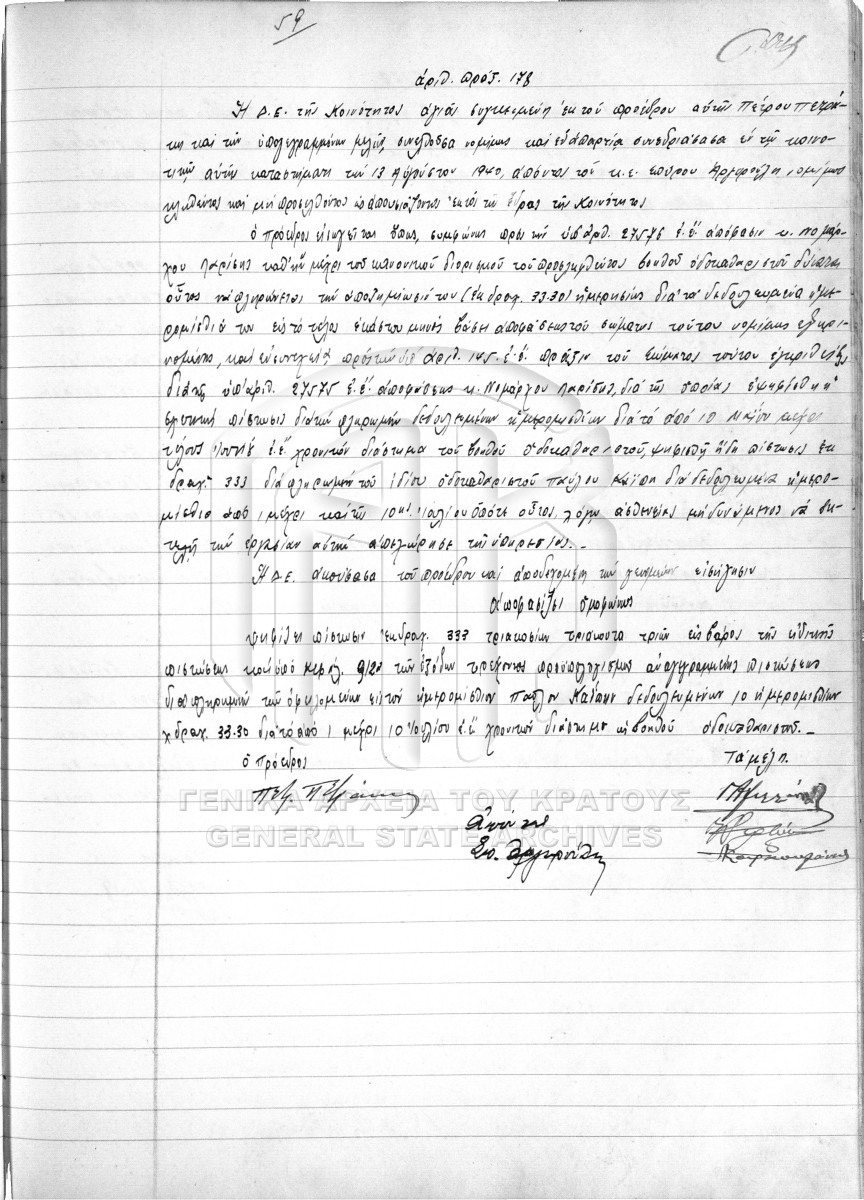 59
ἀριθ. πρδξ. 178
Ἡ Δ.Ε. τῆς Κοινότητος Ἁγιᾶς συγκειμένη ἐκ τοῦ προέδρου αὐτῆς Πέτρου
καὶ τῶν ὑπογεγραμμένων μελῶν, συνελθοῦσα νομίμως καὶ ἐν ἀπαρτίᾳ συνεδριάσασα ἐν τῷ κοινο-
τικῷ αὐτῆς καταστήματι τὴν 13 Αὐγούστου 1940, ἀπόντος τοῦ κ. Σπύρου νομίμως
κληθέντος καὶ μὴ προσελθόντος ὡς ἀπουσιάζοντος ἐκτὸς τῆς ἕδρας τῆς Κοινότητος
Ὁ πρόεδρος εἰσηγεῖται ὅπως, συμφώνως πρὸς τὴν ὑπ' ἀριθ. 27575 ἐ.ἔ. ἀπόφασιν κ. Νομάρ-
χου Λαρίσης καθ' ἣν μέχρι τοῦ κανονικοῦ διορισμοῦ τοῦ προσληφθέντος βοηθοῦ ὁδοκαθαριστοῦ δύναται
οὗτος νὰ πληρώνεται τὴν ἀποζημίωσίν του (ἐκ δραχ. 33.30) ἡμερησίως διὰ τὰ δεδουλευμένα ἡμε-
ρομίσθιά του εἰς τὸ τέλος ἑκάστου μηνὸς βάσει ἀποφάσεως τοῦ σώματος τούτου νομίμως ἐγκρι-
νομένης, καὶ ἐν συνεχείᾳ πρὸς τὴν ὑπ' ἀριθ. 145 ἐ.ἔ. πρᾶξιν τοῦ Σώματος τούτου ἐγκριθεῖσαν
διὰ τῆς ὑπ' ἀριθ. 27575 ἐ.ἔ. ἀποφάσεως κ. Νομάρχου Λαρίσης, διὰ τῆς ὁποίας ἐψηφίσθη ἡ
πίστωσις διὰ τὴν πληρωμὴν δεδουλευμένων ἡμερομισθίων διὰ τὸ ἀπὸ 10 Μαΐου μέχρι
τέλους Ἰουνίου ἐ.ἔ. χρονικὸν διάστημα τοῦ βοηθοῦ ὁδοκαθαριστοῦ, ψηφισθῇ ἤδη πίστωσις ἐκ
δραχ. 333 διὰ πληρωμὴν τοῦ ἰδίου ὁδοκαθαριστοῦ Παύλου διὰ δεδουλευμένα ἡμερο-
μίσθια ἀπὸ 1 μέχρι καὶ τῆς 10ης Ἰουλίου ὁπότε οὗτος, λόγῳ ἀσθενείας μὴ δυνάμενος νὰ ἐκ-
τελῇ τὴν ἐργασίαν αὐτὴν ἀπεχώρησε τῆς ὑπηρεσίας.-
Ἡ Δ.Ε. ἀκούσασα τοῦ προέδρου καὶ ἀποδεχομένη τὴν εἰσήγησιν
ἀποφασίζει ὁμοφώνως
Ψηφίζει πίστωσιν ἐκ δραχ. 333 τριακοσίων τριάκοντα τριῶν εἰς βάρος τῆς εἰδικῆς
πιστώσεως καὶ ὑπὸ κεφάλ. 9/27 τῶν ἐξόδων τρέχοντος προϋπολογισμοῦ ἀναγεγραμμένης πιστώσεως
διὰ πληρωμὴν τῶν ὀφειλομένων εἰς τὸν ἡμερομίσθιον Παῦλον δεδουλευμένων 10 ἡμερομισθίων
χ δραχ. 33.30 διὰ τὸ ἀπὸ 1 μέχρι 10 Ἰουλίου ἐ.ἔ. χρονικὸν διάστημα ὡς βοηθοῦ ὁδοκαθαριστοῦ.-
Ὁ Πρόεδρος Τὰ μέλη.
ΓΕΝΙΚΑ ΑΡΧΕΙΑ ΤΟΥ ΚΡΑΤΟΥΣ
GENERAL STATE ARCHIVES